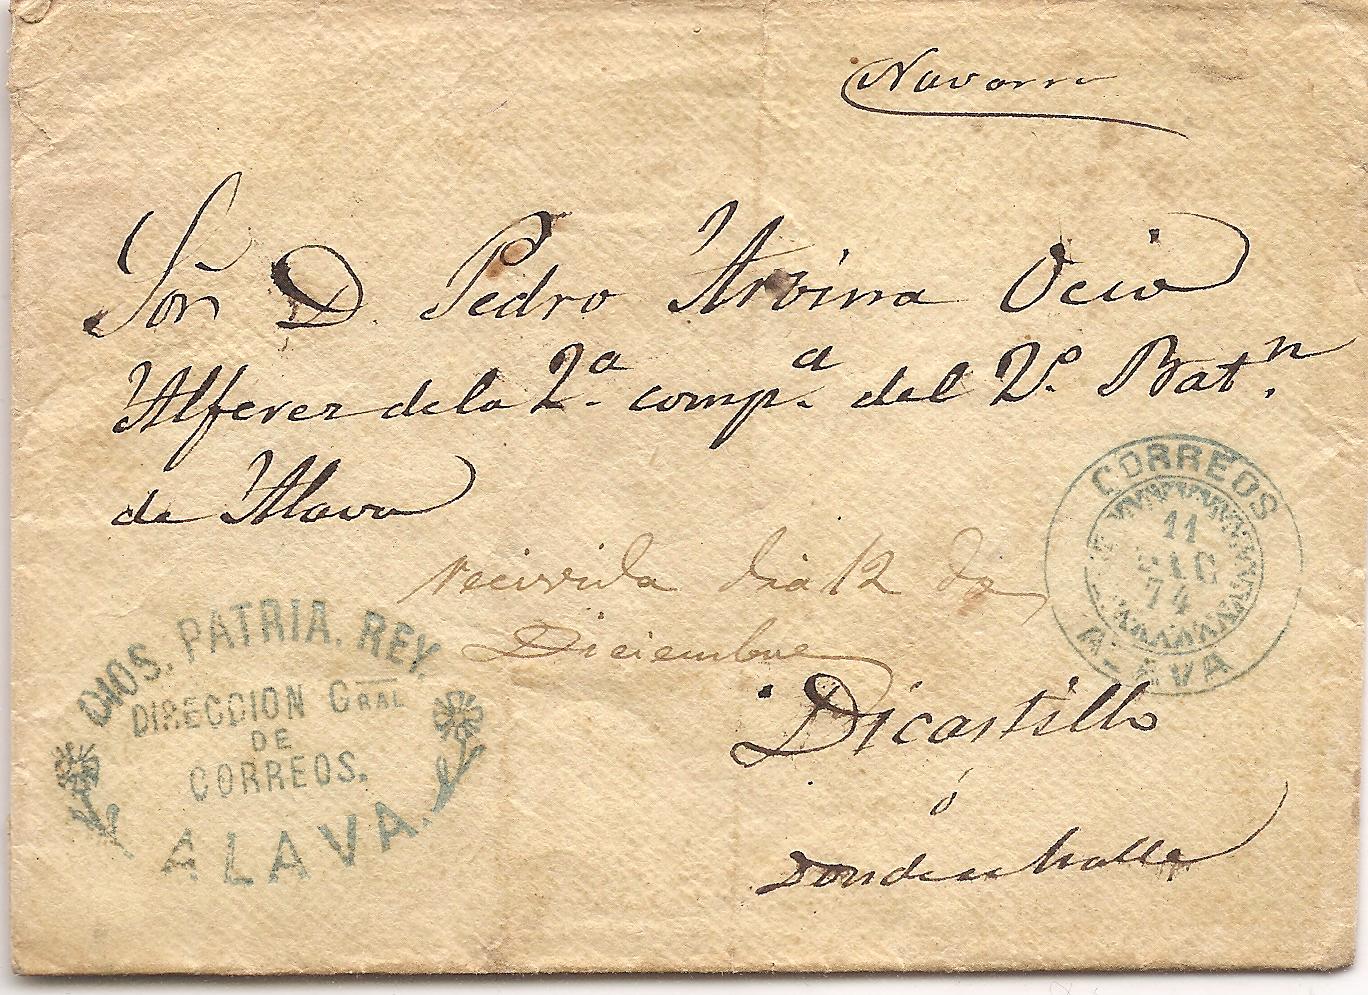 Navarra
Sor̃ D. Pedro Urbina Ocio
Alferez de la 2.ª comp.ª del 2.º Bat.n
de Alava
recivida dia 12 de
Diciembre
CORREOS
11
DIC
74
ALAVA
DIOS. PATRIA. REY.
DIRECCION GRAL
DE
CORREOS.
ALAVA.
Dicastillo
ó
donde se halle